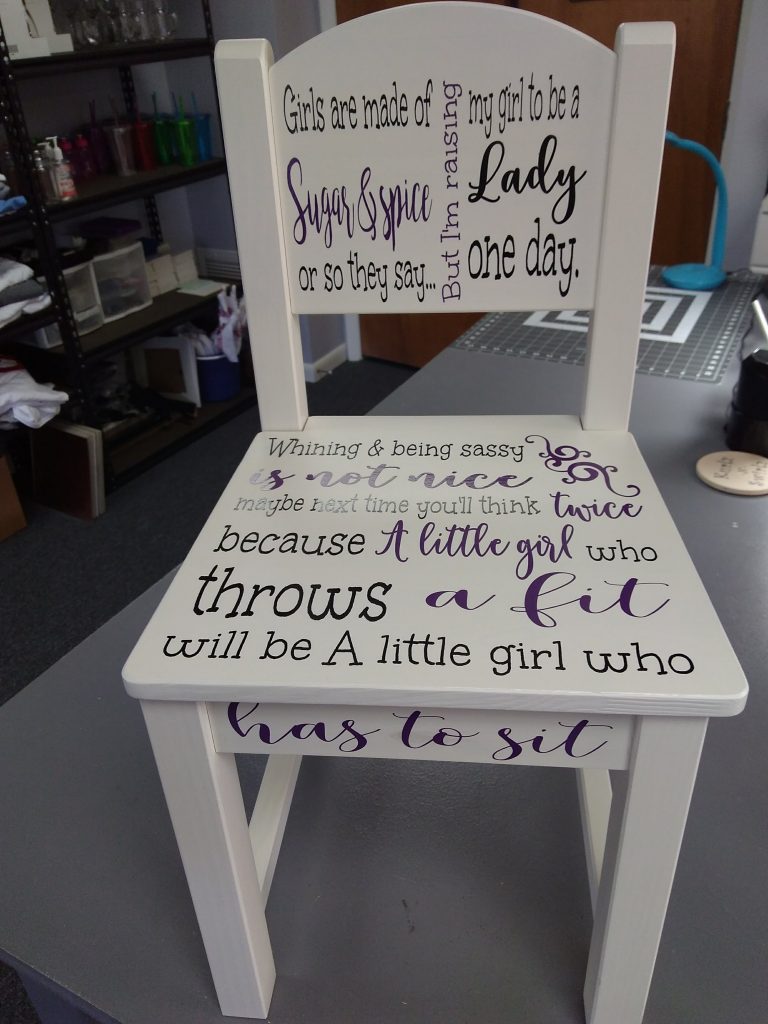 Girls are made of
Sugar & spice
or so they say...
But I'm raising
my girl to be a
Lady
one day.
Whining & being sassy
is not nice
maybe next time you'll think twice
because A little girl who
throws a fit
will be A little girl who
has to sit